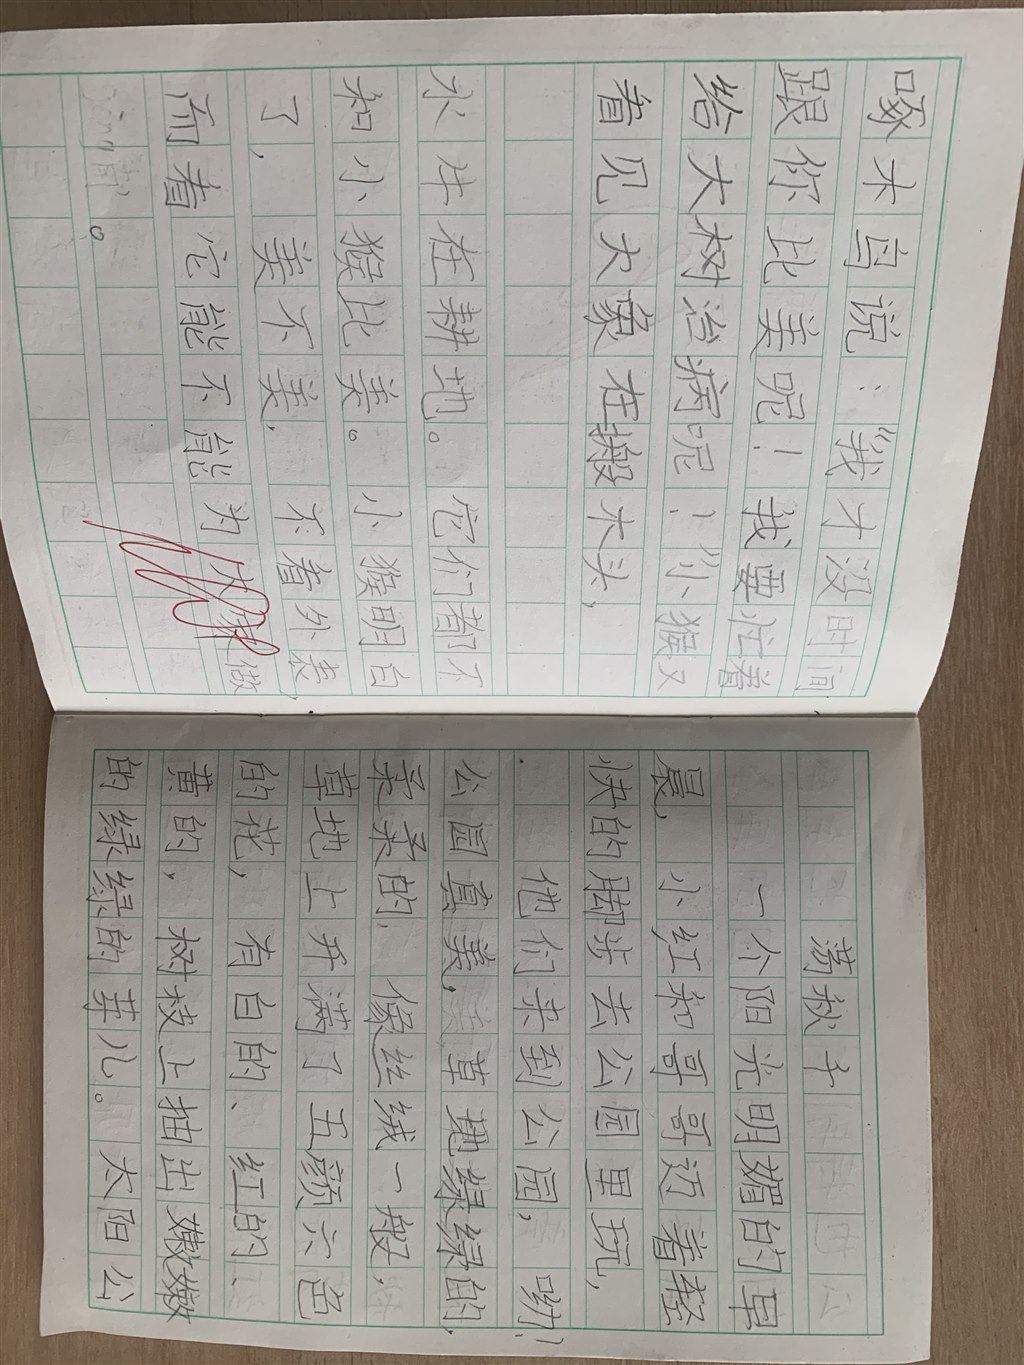 啄木鸟说：“我才没时间
跟你比美呢！我要忙着
给大树治病呢！”小猴又
看见大象在搬木头，
水牛在耕地。它们都不
和小猴比美。小猴明白
了，美不美，不看外表
而看它能不能为大家做
。
荡秋千
一个阳光明媚的早
晨，小红和哥哥迈着轻
快的脚步去公园里玩，
他们来到公园，哟！
公园真美，草地绿绿的，
柔柔的，像丝绒一般，
草地上开满了五颜六色
的花，有白的、红的、
黄的，树枝上抽出嫩嫩
的绿绿的芽儿。太阳公